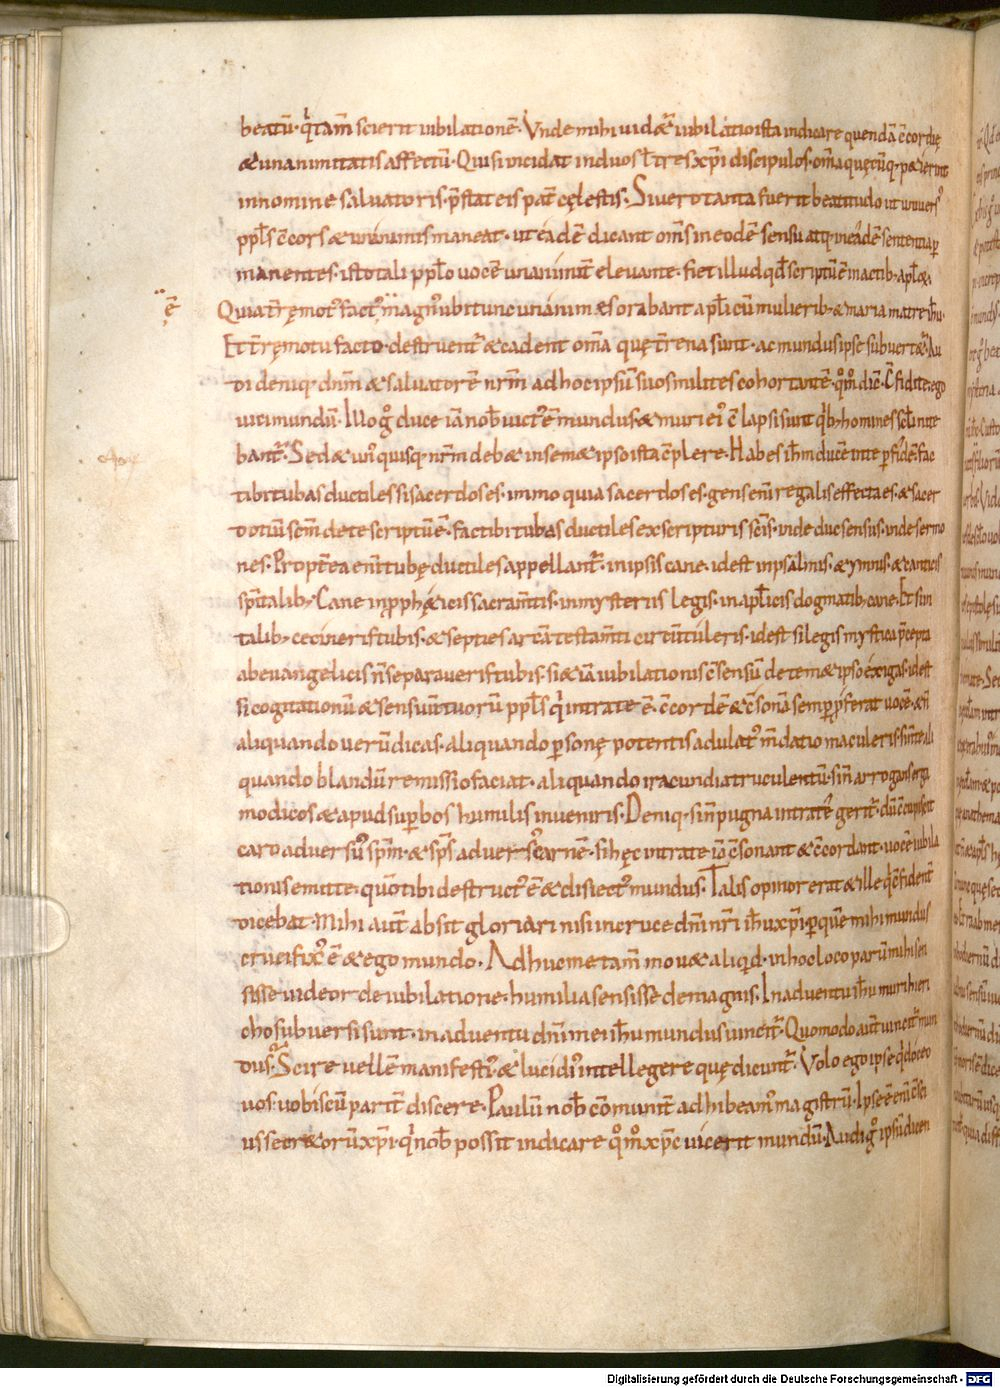 beatū· q̇ tam̄ scierit iubilationē· Vnde mihi uidet᷑ iubilatio ista indicare quendā c̄cordię
& unanimitatis affectū· Qui si incidat in duos ł tres xp̄i discipulos· om̄a quęcūq· petierint
in nomine saluatoris· p̄stat eis pat̄ cęlestis· Si uero tanta fuerit beatitudo ut uniuers᷒
ppl̄s c̄cors & unianimis maneat· ut eadē dicant om̄s in eodē sensu atq· in eadē sententia per
manentes· isto tali ppl̄o uocē unanimit̄ eleuante· fiet illud qd̄ scriptū ē in actib· apl̄oꝝ
ē Quia t̄ręmot᷒ fact᷒ magn᷒ ubi tunc unanimes orabant apl̄i cū mulierib· & maria matre ih̄u·
Et t̄ręmotu facto· destruent᷑ & cadent om̄a quę t̄rena sunt· ac mundus ipse subuertet᷑· Au
di deniq· dn̄m & saluatorē nr̄m ad hoc ipsū suos milites cohortantē· qm̄o dic̄· C̄fidite· ego
uici mundū· Illo g̊ duce iā nob̄ uict᷒ ē mundus & muri ei᷒ c̄lapsi sunt q̇b; homines scl̄i nite
bant᷑· Sed & un᷒quisq· nr̄m debet in semet ipso ista c̄plere· Habes ih̄m ducē in te p fidē· fac
tibi tubas ductiles si sacerdos es· immo quia sacerdos es· gens eni̅ regalis effecta es· & sacer
dotiū sc̄m de te scriptū ē· fac tibi tubas ductiles ex scripturis sc̄is· inde duc sensus· inde sermo
nes· Propt̄ea eni̅ tubę ductiles appellant᷑· in ipsis cane· id est in psalmis· & ymnis· & canticis
spīt̄alib; Cane in pphęticis sacram̄tis· in mysteriis legis· in apl̄icis dogmatib; cane· Et si in
talib; cecineris tubis· & septies arcā testam̄ti circūtuleris· id est si legis mystica p̄cepta
ab euangelicis n̄ separaueris tubis· si & iā iubilationis c̄sensū de temet ipso exigas· id est
si cogitationū & sensuū tuorū ppl̄s q̇ intra te ē· c̄cordē & c̄sonā semp pferat uocē· & n̄
aliquando uerū dicas· aliquando p sonę potentis adulat᷒ m̄datio maculeris· si n̄ te ali
quando blandū remissio faciat· aliquando iracundia truculentū· si n̄ arrogans erga
modicos & apud supbos humilis inueniris· Deniq· si n̄ pugna intra te gerit᷑· dū c̄cupiscit
caro aduersū sp̄m· & sp̄s aduers᷒ carnē· si hęc intra te iā c̄sonant & c̄cordant· uocē iubila
tionis emitte· quō tibi destruct᷒ ē & disiect᷒ mundus· Talis opinor erat & ille q̇ c̄fident̄
dicebat· Mihi aut̄ absit gloriari nisi in cruce dn̄i nr̄i ih̄u xp̄i p quē mihi mundus
crucifix᷒ ē & ego mundo· Adhuc me tam̄ mouet aliqid· in hoc loco parū mihi sen
sisse uideor de iubilatione· humilia sensisse de magnis· In aduentu ih̄u muri hieri
cho subuersi sunt· in aduentu dn̄i mei ih̄u mundus uincit᷑· Quomodo aut̄ uincit᷑ mun
dus· Scire uellē manifesti᷒ & lucidi᷒ intellegere quę dicunt᷑· Volo ego ipse q̇ doceo
uos· uobiscū parit̄ discere· Paulū nob̄ cōmunit̄ adhibeam᷒ magistrū· Ipse ē eni̅ c̄sci
us secretorū xp̄i· q̇ nob̄ possit indicare qm̄o xp̄c uicerit mundū· Audi g̊ ipsū dicen
Digitalisierung gefördert durch die Deutsche Forschungsgemeinschaft - DFG